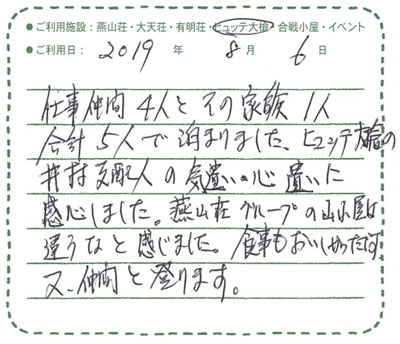 ●ご利用施設：燕山荘・大天荘・有明荘・ヒュッテ大槍・合戦小屋・イベント
●ご利用日： 2019 年 8 月 6 日
仕事仲間4人とその家族1人
合計5人で泊まりました、ヒュッテ大槍の
井村支配人の気遣い・心遣いに
感心しました。燕山荘グループの山小屋は
違うなと感じました。食事もおいしかったです
又、仲間と登ります。